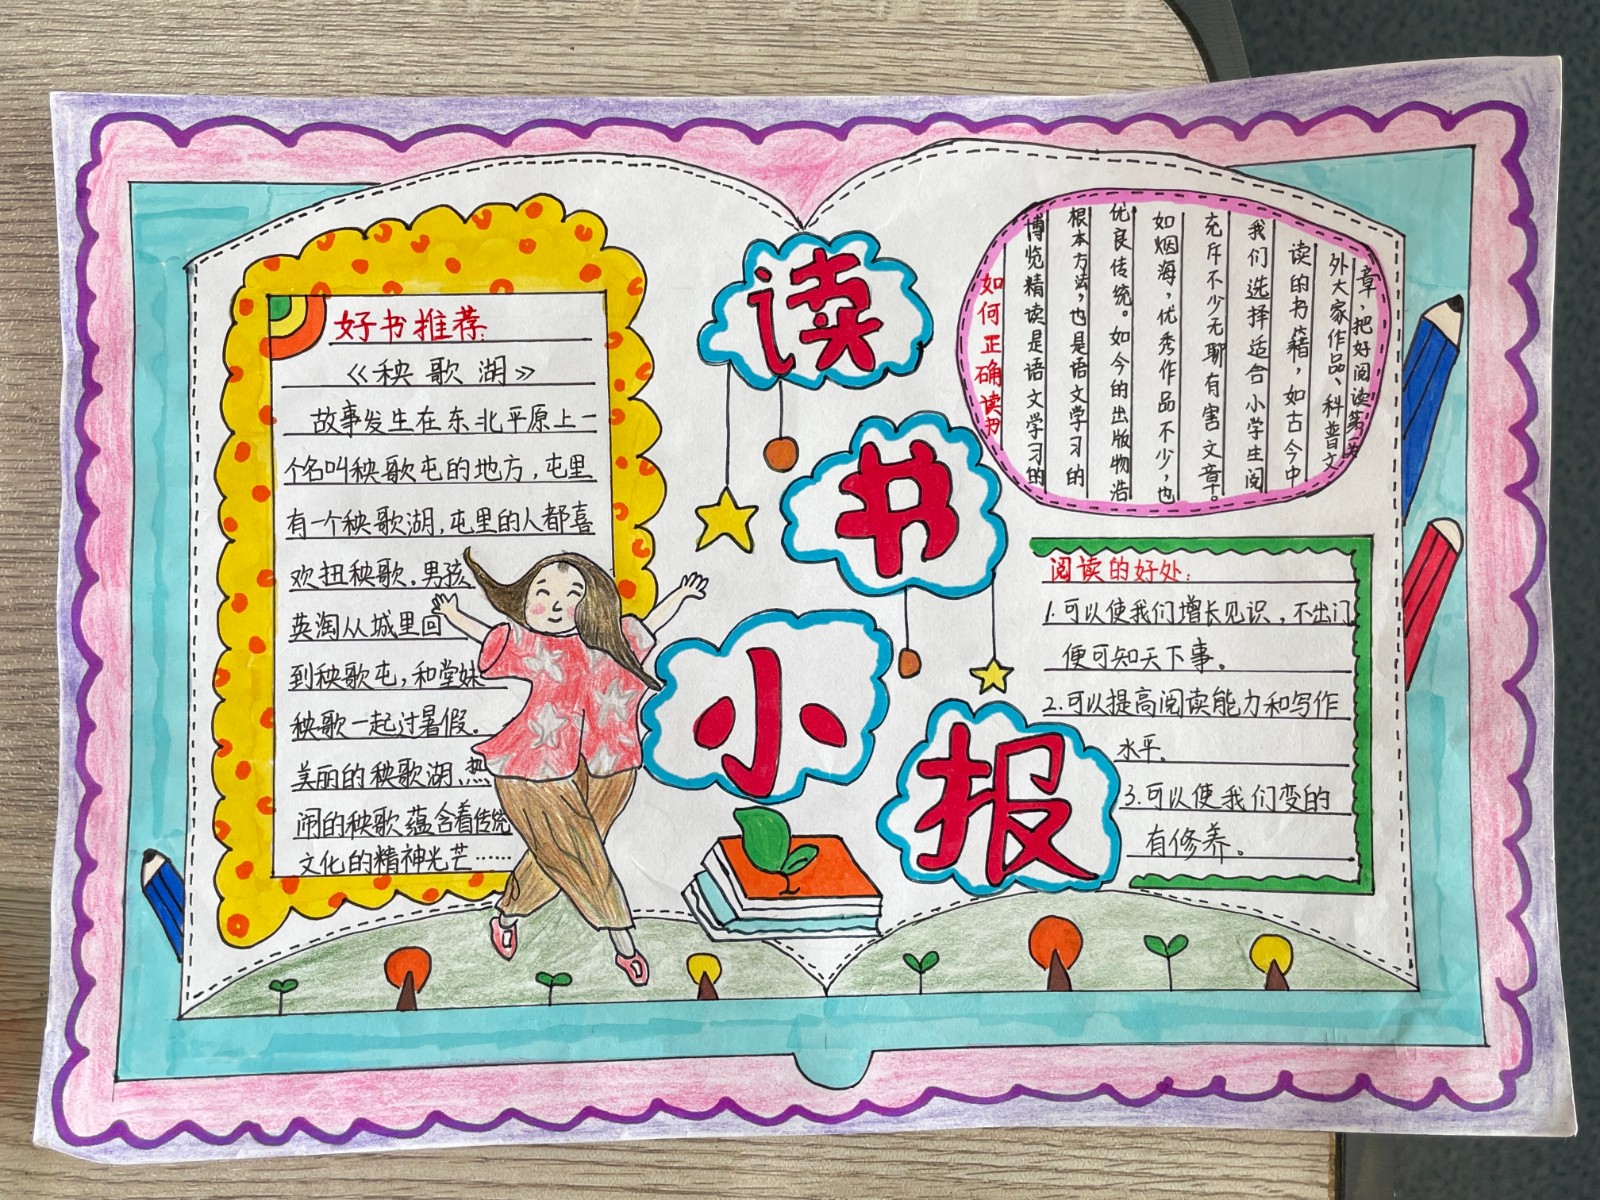 读书小报
好书推荐:
《秧歌湖》
故事发生在东北平原上一
个名叫秧歌屯的地方,屯里
有一个秧歌湖,屯里的人都喜
欢扭秧歌。男孩
英淘从城里回
到秧歌屯,和堂妹
秧歌一起过暑假。
美丽的秧歌湖、热
闹的秧歌蕴含着传统
文化的精神光芒……
如何正确读书
博览精读是语文学习的
根本方法,也是语文学习的
优良传统。如今的出版物浩
如烟海,优秀作品不少,也
充斥不少无聊有害文章。
我们选择适合小学生阅
读的书籍,如古今中
外大家作品、科普文
章,把好阅读
阅读的好处:
1.可以使我们增长见识,不出门
便可知天下事。
2.可以提高阅读能力和写作
水平。
3.可以使我们变的
有修养。